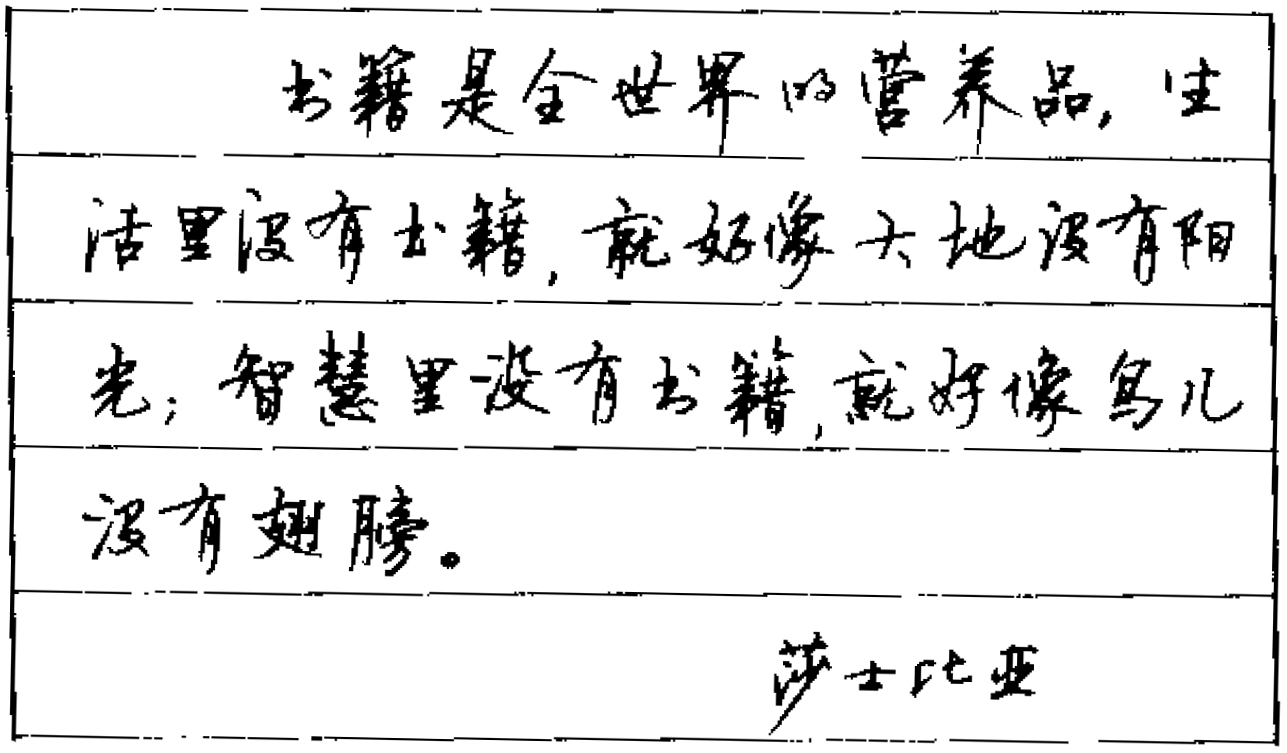 书籍是全世界的营养品，生
活里没有书籍，就好像大地没有阳
光；智慧里没有书籍，就好像鸟儿
没有翅膀。
莎士比亚